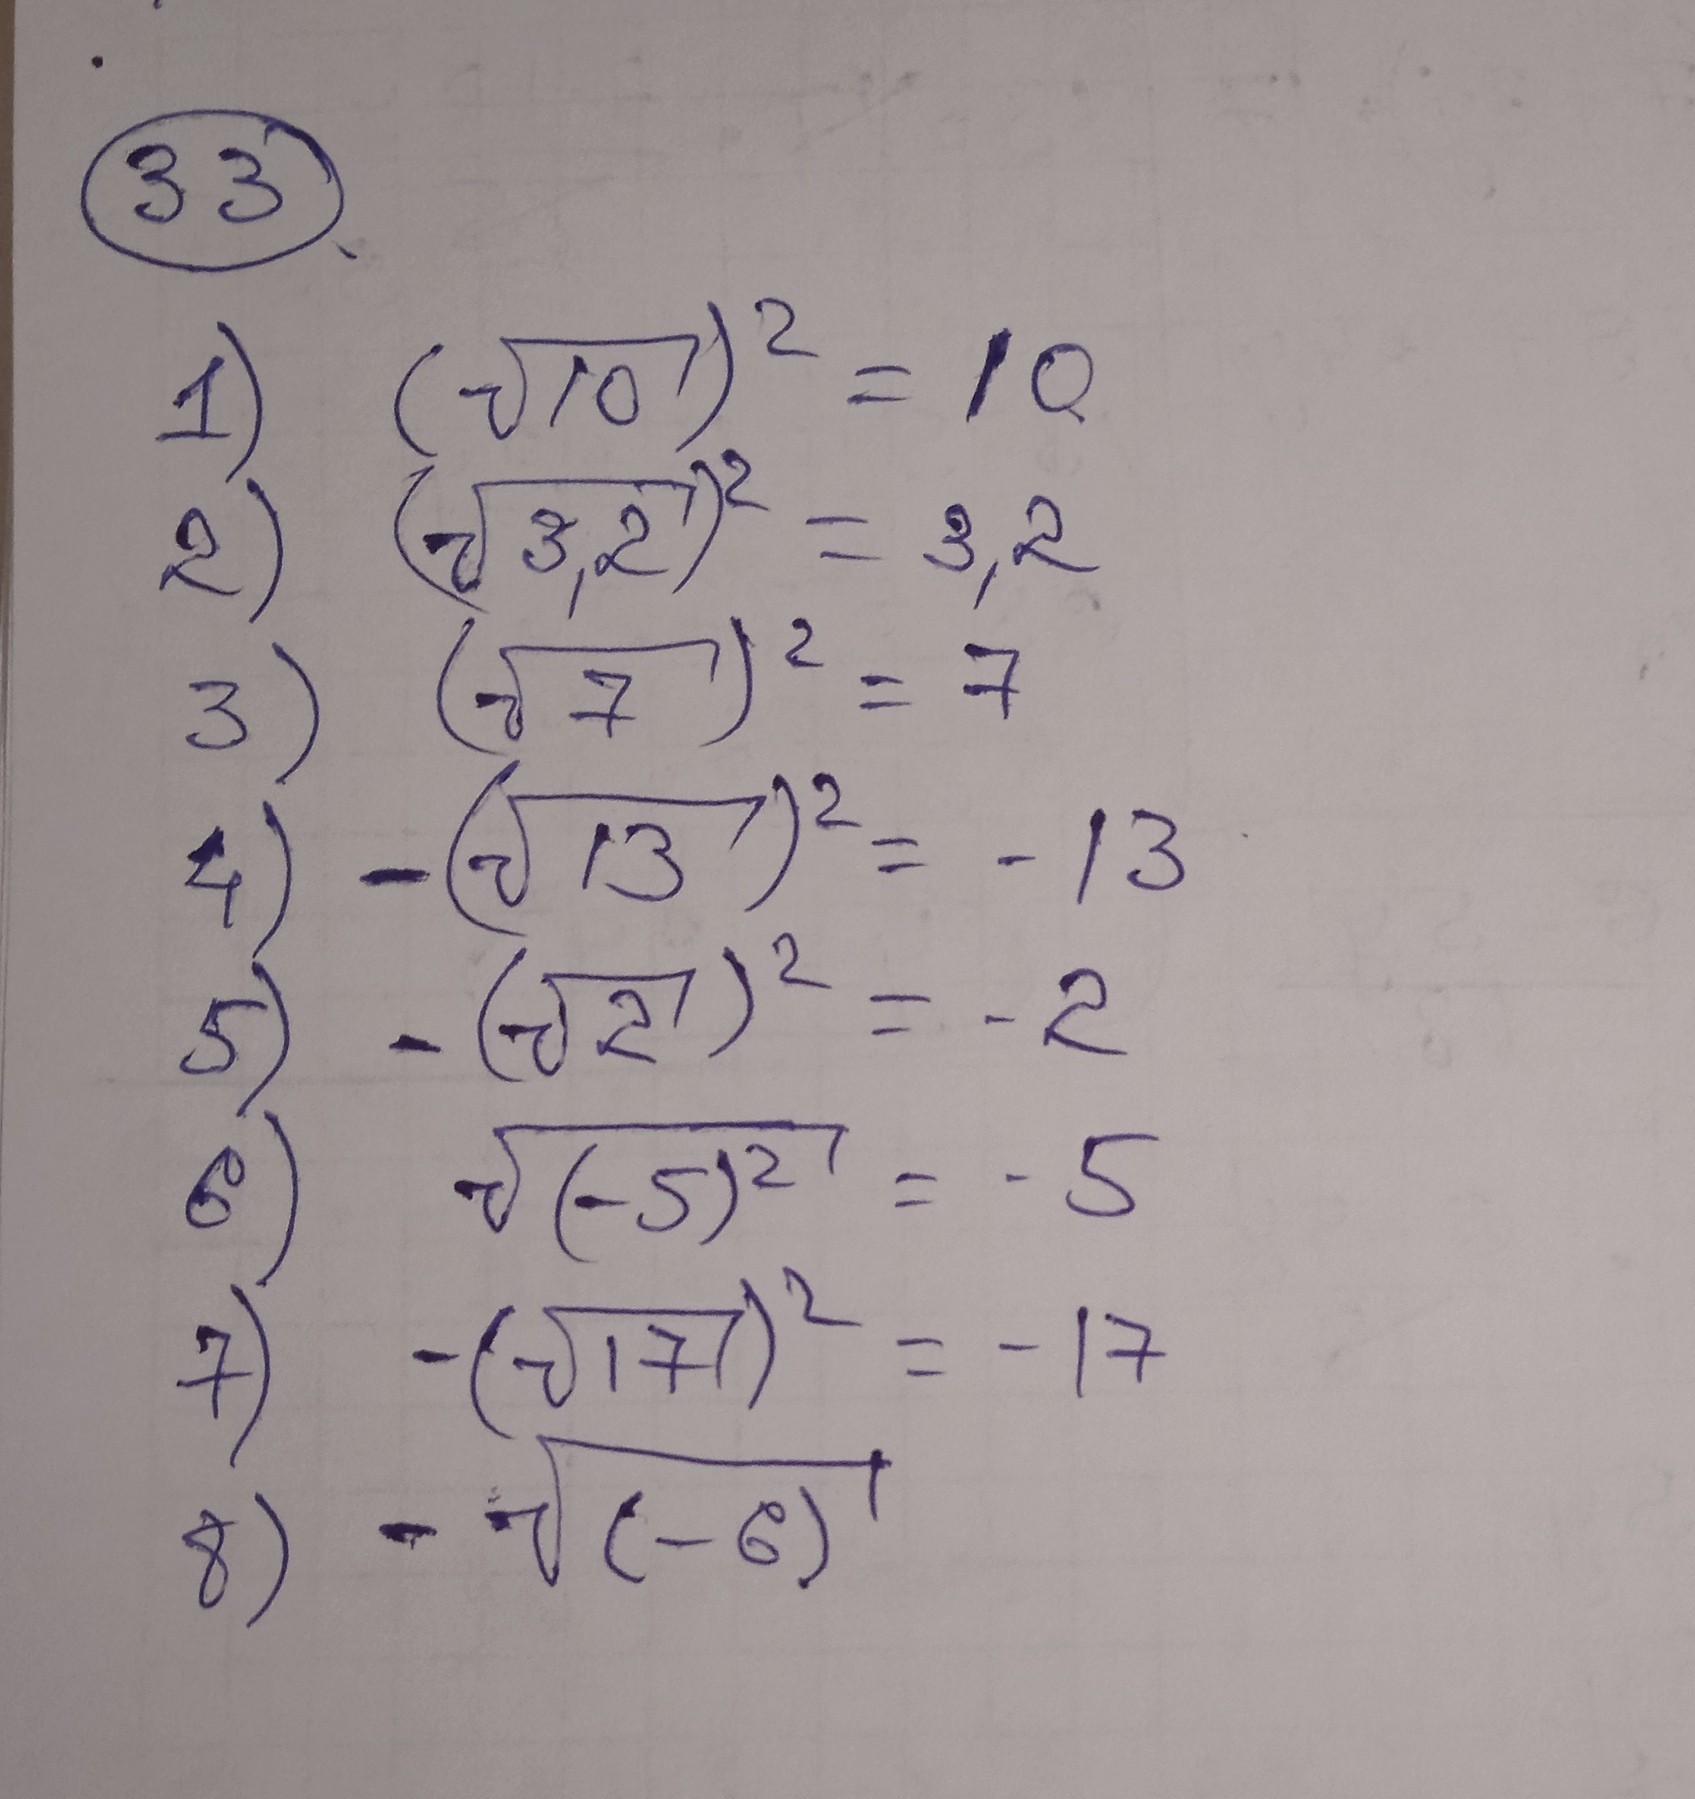 33
1) (√10)² = 10
2) (√3,2)² = 3,2
3) (√7)² = 7
4) -(√13)² = -13
5) -(√2)² = -2
6) √(-5)² = -5
7) -(√17)² = -17
8) -√(-6)